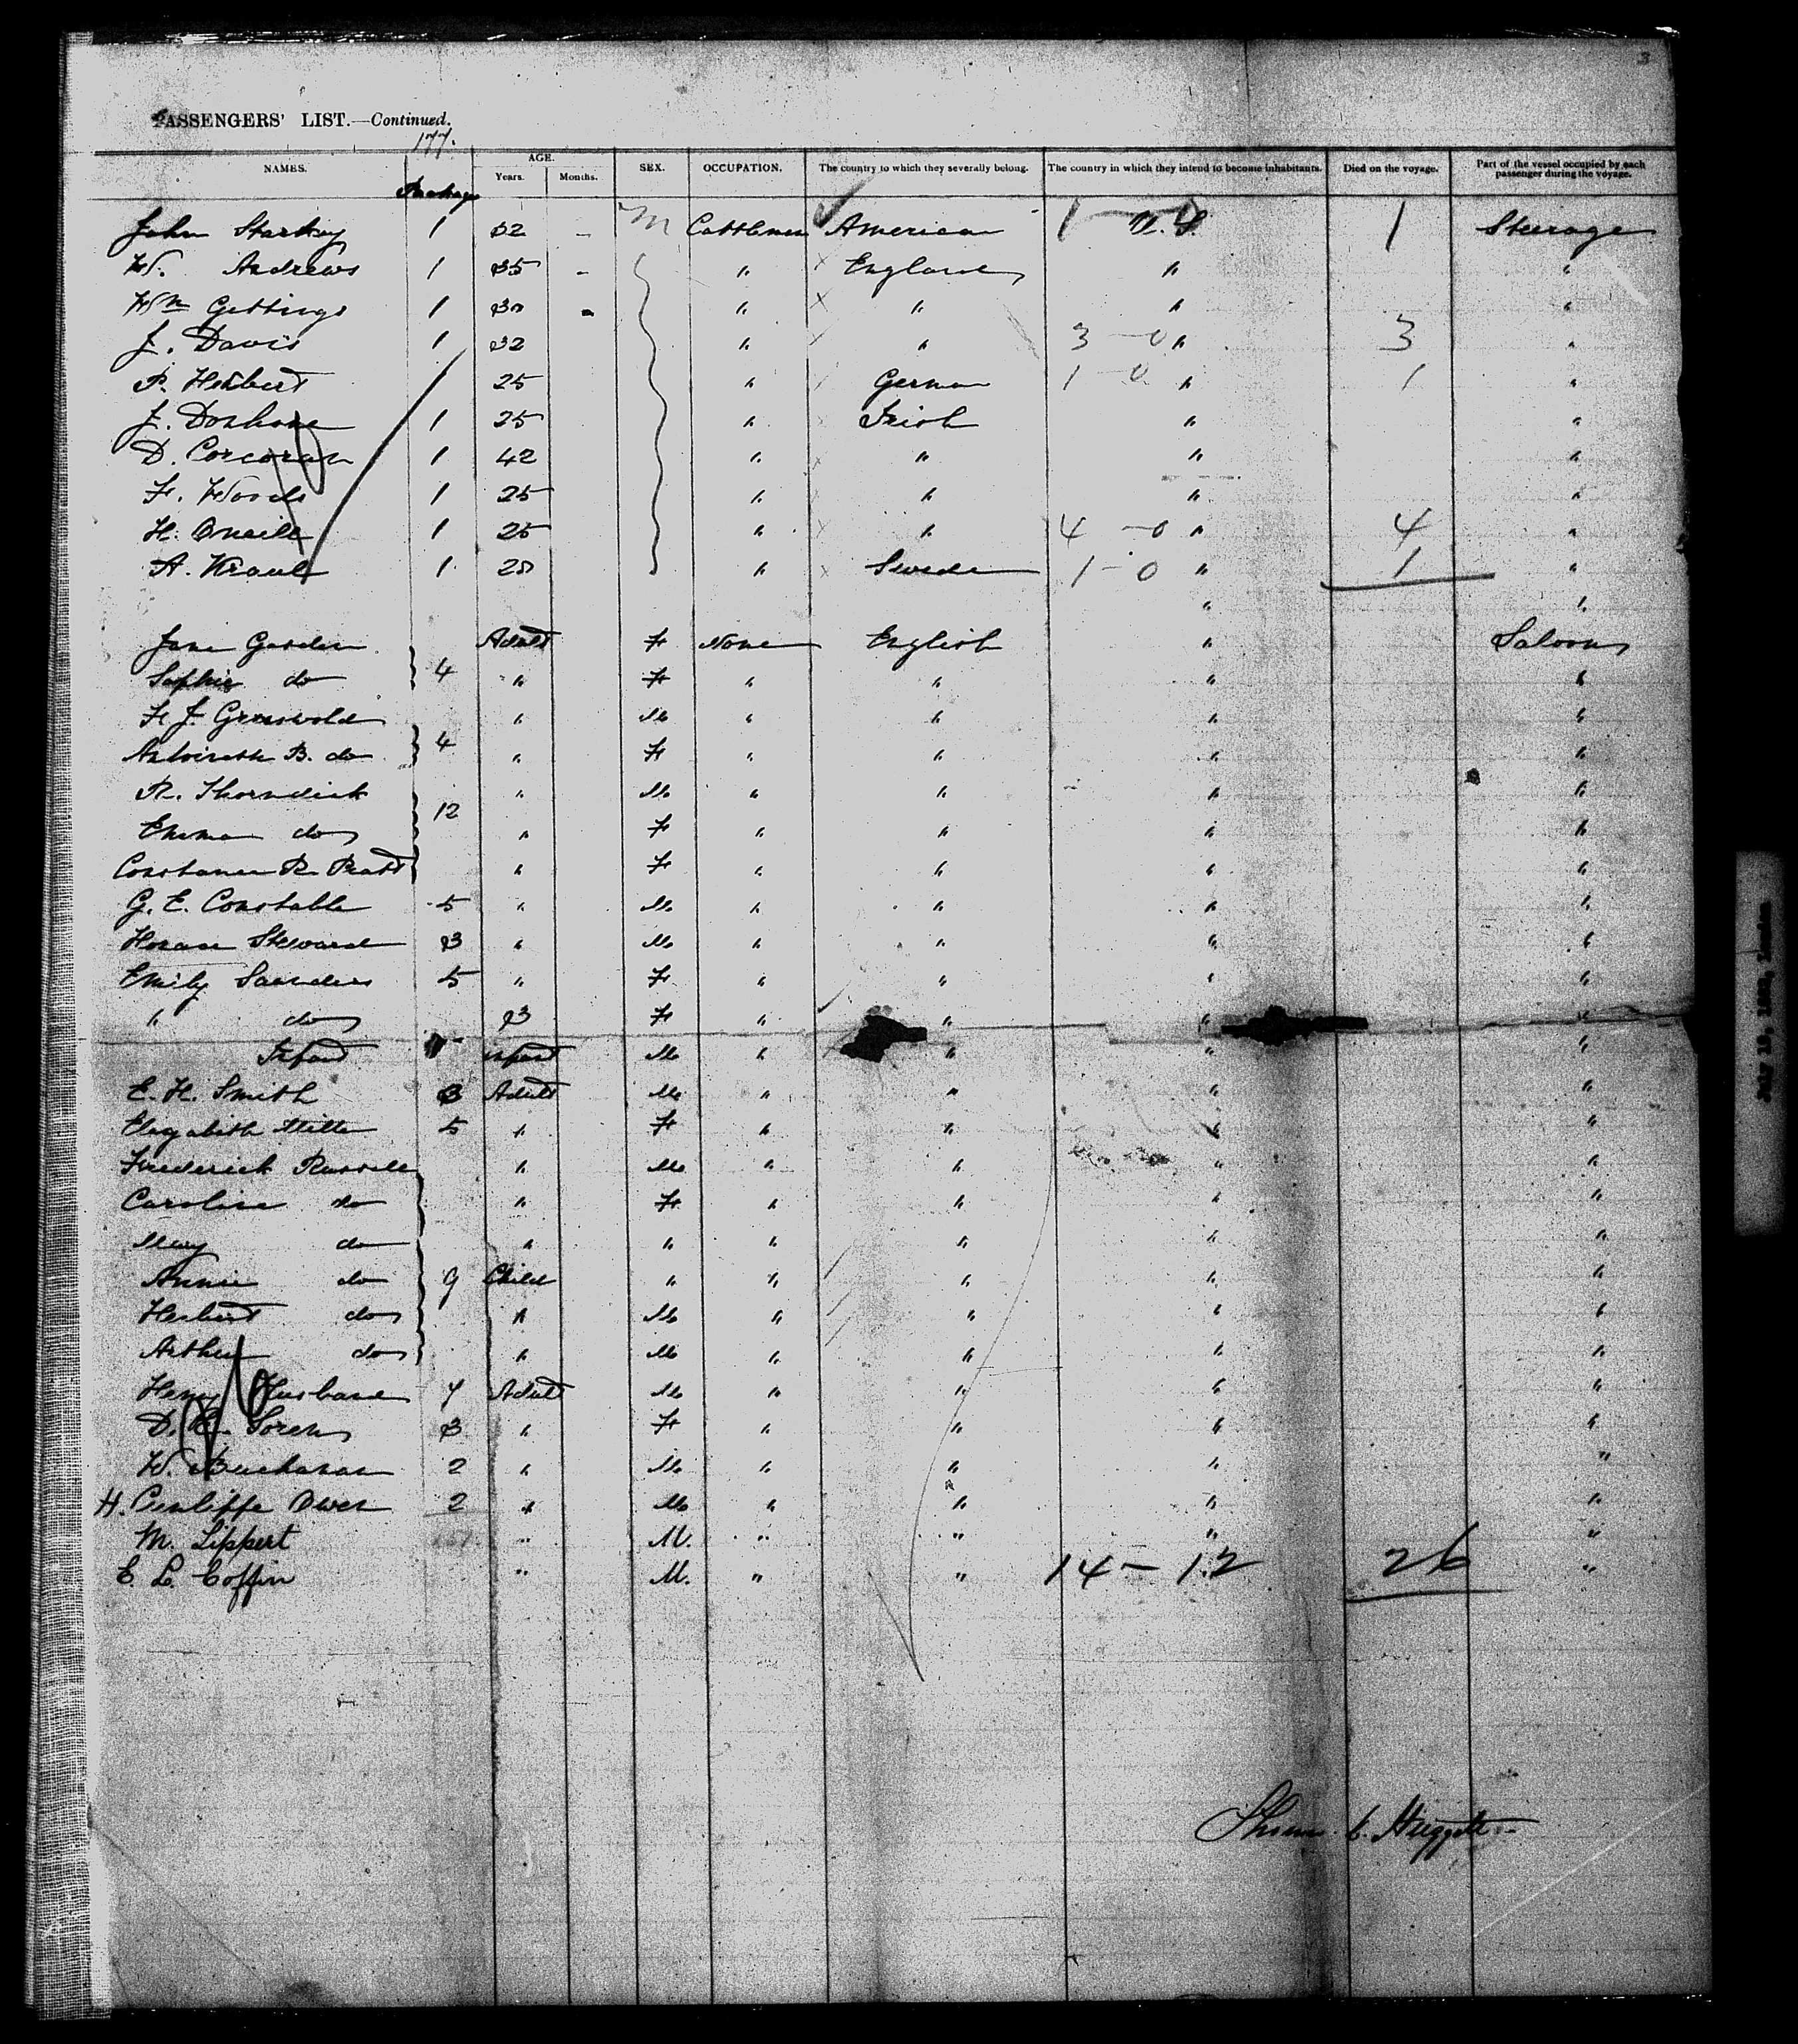 3
PASSENGERS' LIST.—Continued.
177.
NAMES. Package AGE. Years. Months. SEX. OCCUPATION. The country to which they severally belong. The country in which they intend to become inhabitants. Died on the voyage. Part of the vessel occupied by each passenger during the voyage.
John Starkey 1 32 - M Cattlemen American 1 - 0 U.S. 1 Steerage
W. Andrews 1 35 - " England " "
Wm Gettings 1 30 - " " " "
J. Davis 1 32 " " 3 - 0 " 3 "
P. Herbert 1 25 " German 1 - 0 " 1 "
J. Donhone 1 25 " Irish " "
D. Corcoran 1 42 " " " "
F. Woods 1 25 " " " "
H. Oneill 1 25 " " 4 - 0 " 4 "
A. 1 " Swede 1 - 0 " 1 "
" "
Jane Garden Adult F None English " Saloon
Sophie do 4 " F " " " "
F J. Griswold " M " " " "
B. do 4 " F " " " "
R. Thorndick " M " " " "
Emma do 12 " F " " " "
Constance R. Pratt " F " " " "
G. E. Constable 5 " M " " " "
Horace Steward 3 " M " " " "
Emily Saunders 5 " F " " " "
" do 3 F " " " "
Infant infant M " " " "
E. H. Smith 3 Adult M " " " "
Elizabeth Mills 5 " F " " " "
Frederick Russell " M " " " "
Caroline do " F " " " "
May do " " " " " "
Annie do 9 Child " " " " "
Herbert do " M " " " "
Arthur do " M " " " "
Henry Husband 7 Adult M " " " "
D. Soren 3 " F " " " "
W. Buchanan 2 " M " " " "
H. Cunliffe Owen 2 " M " " " "
M. Lippert 151 " M. " " " "
E. L. Coffin " M. " " 14 - 12 26 "
C. Huggett